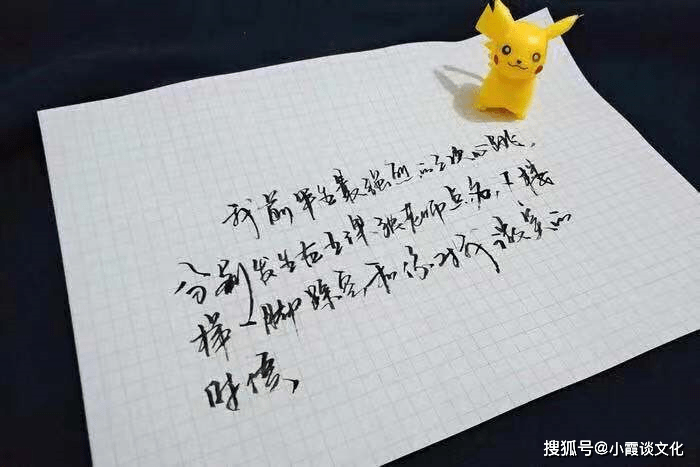 我前半生最强烈的三次心跳，
分别发生在上课被老师点名，下楼
梯一脚踩空和你对我微笑的
时候
搜狐号@小霞谈文化